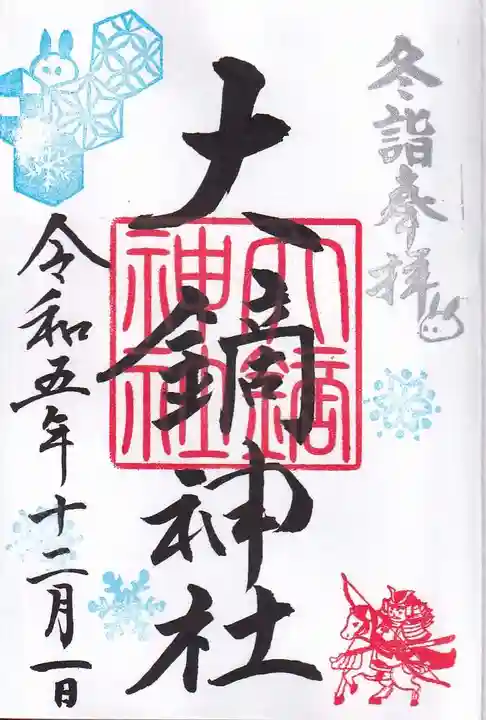 冬詣奉拝
大鏑神社
大鏑神社
令和五年十二月一日